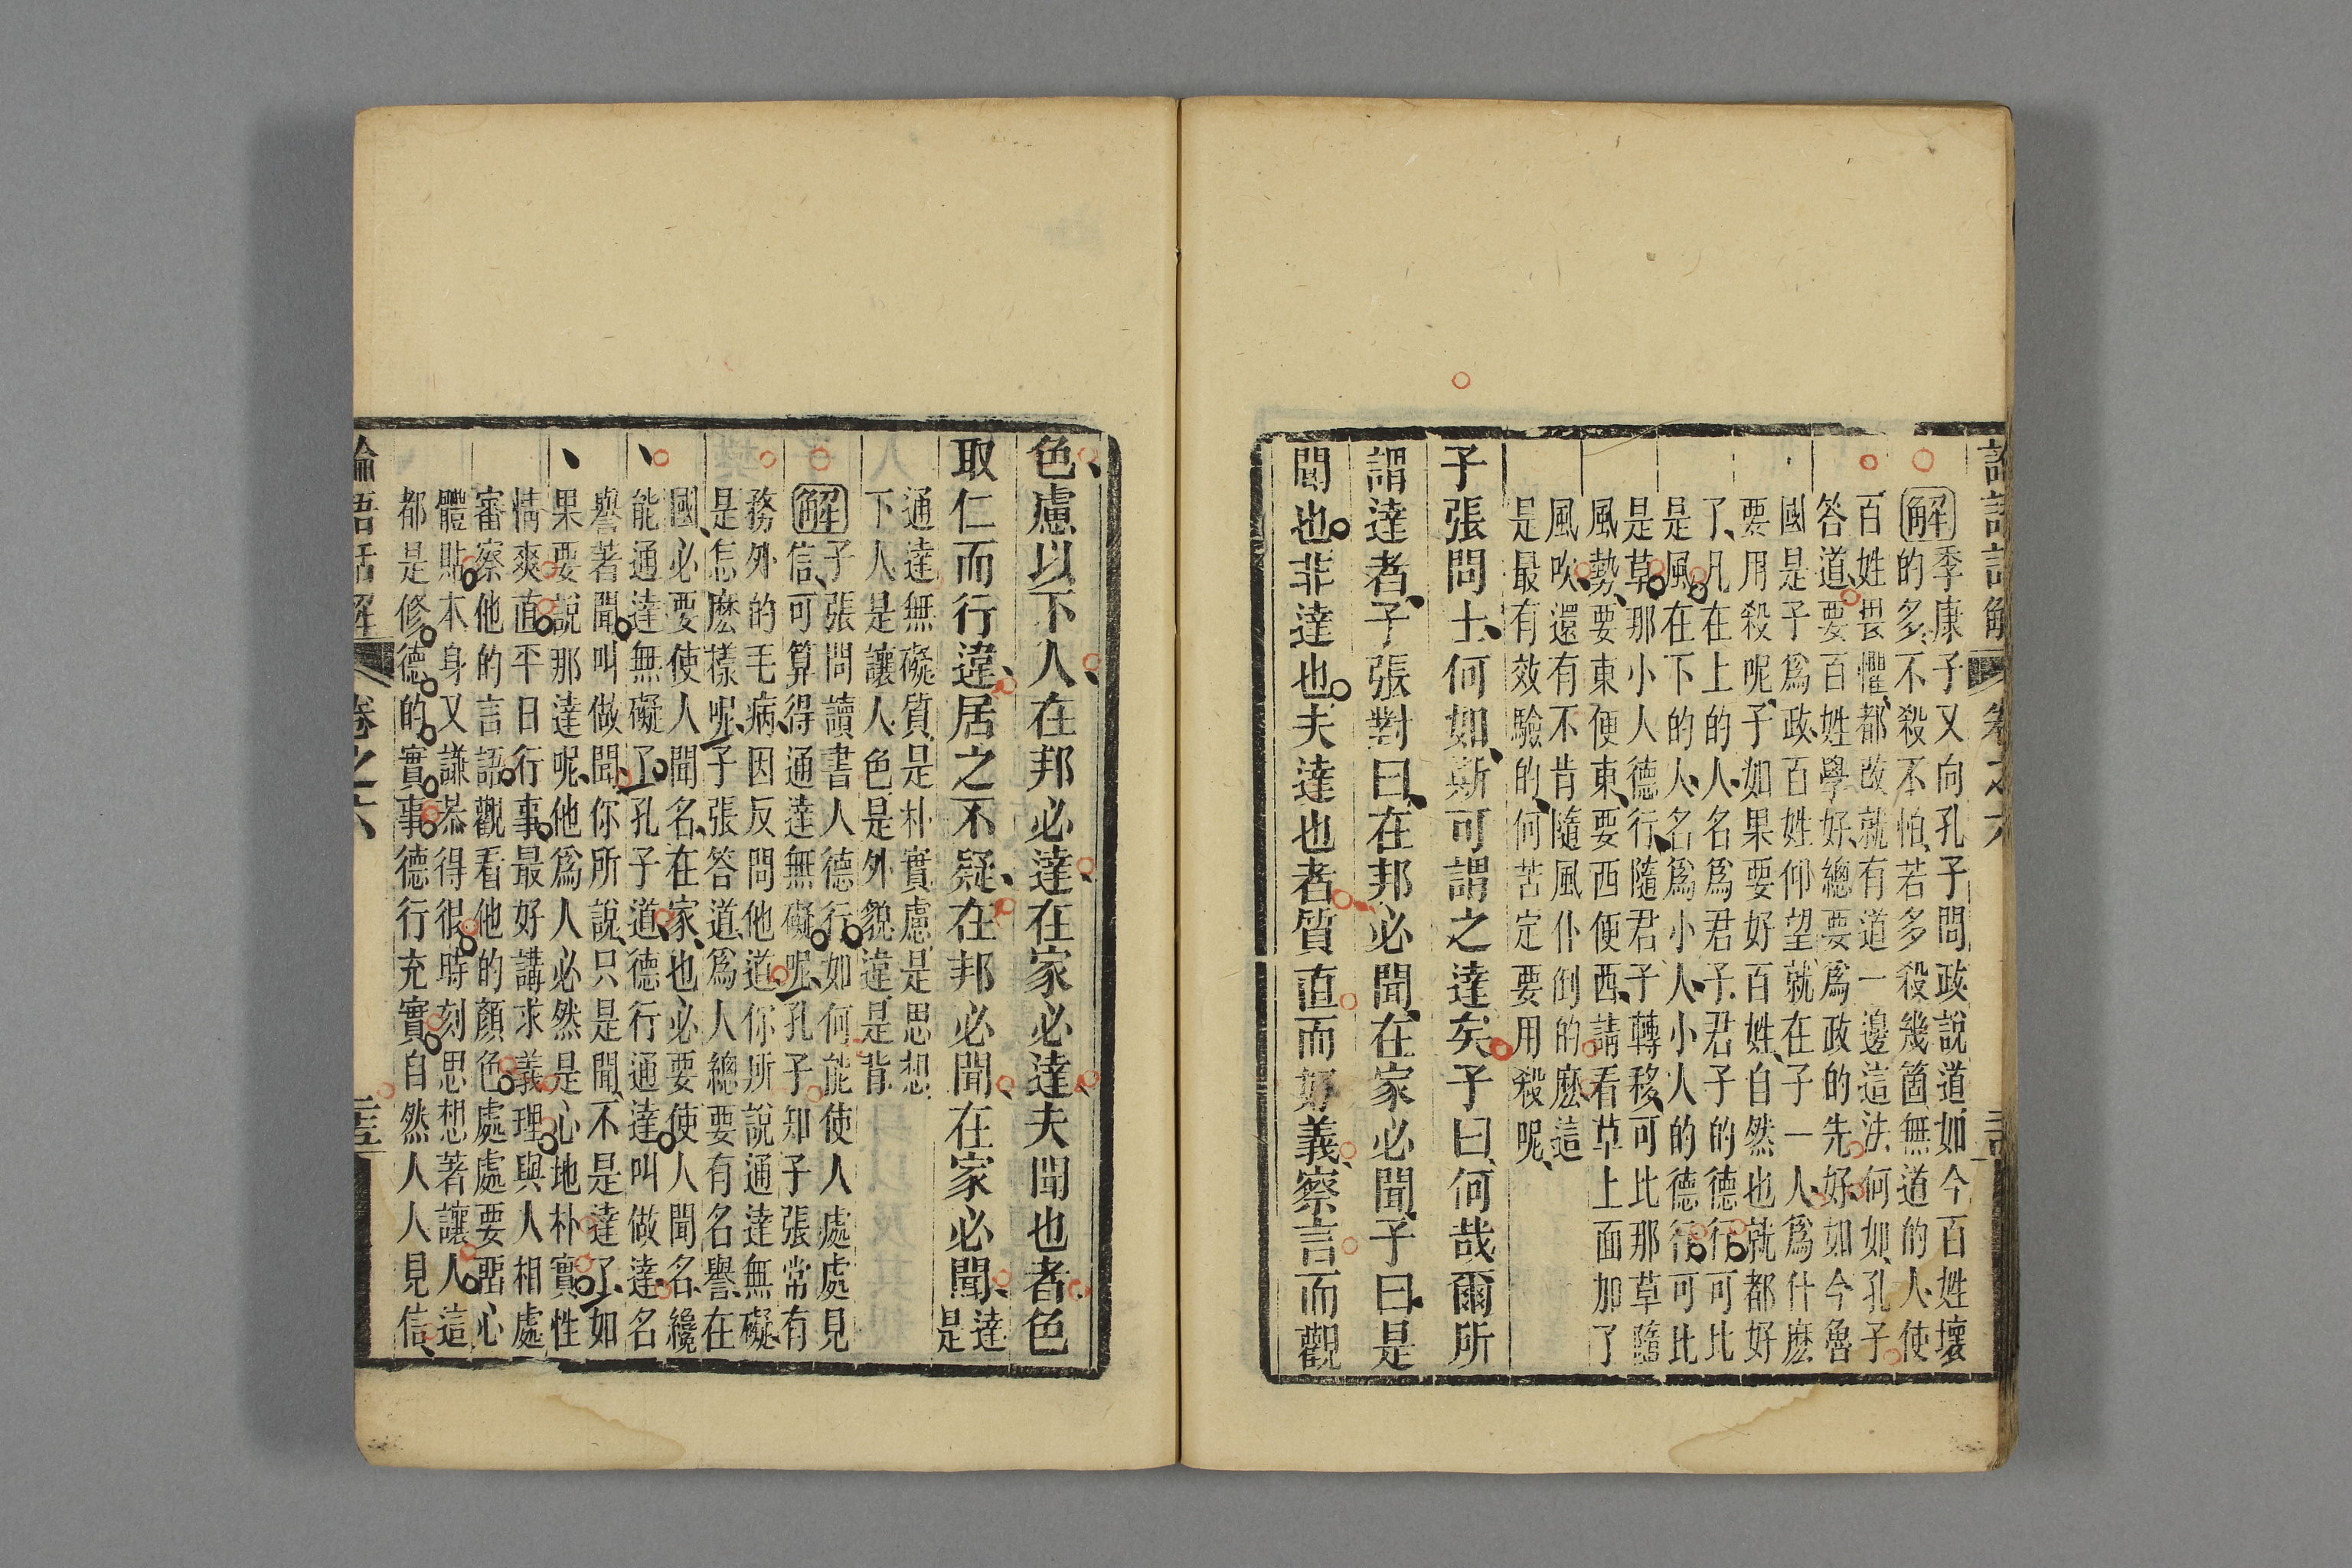 解 季康子又向孔子問政說道如今百姓壞
的多不殺不怕若多殺幾箇無道的人使
百姓畏懼都改就有道一邊這法何如孔子
答道要百姓學好總要爲政的先好如今魯
國是子爲政百姓仰望就在子一人爲什麽
要用殺呢子如果要好百姓自然也就都好
了凡在上的人名爲君子君子的德行可比
是風在下的人名爲小人小人的德行可比
是草那小人德行隨君子轉移可比那草隨
風勢要東便東要西便西請看草上面加了
風吹還有不肯隨風仆倒的麽這
是最有效驗的何苦定要用殺呢
子張問士何如斯可謂之達矣子曰何哉爾所
謂達者子張對曰在邦必聞在家必聞子曰是
聞也非達也夫達也者質直而好義察言而觀
色慮以下人在邦必達在家必達夫聞也者色
取仁而行違居之不疑在邦必聞在家必聞達是
通達無礙質是朴實慮是思想
下人是讓人色是外貌違是背
解 子張問讀書人德行如何能使人處處見
信可算得通達無礙呢孔子知子張常有
務外的毛病因反問他道你所說通達無礙
是怎麽樣呢子張答道爲人總要有名譽在
國必要使人聞名在家也必要使人聞名纔
能通達無礙了孔子道德行通達叫做達名
譽著聞叫做聞你所說只是聞不是達了如
果要說那達呢他爲人必然是心地朴實性
情爽直平日行事最好講求義理與人相處
審察他的言語觀看他的顏色處處要惡心
體貼本身又謙恭得很時刻思想著讓人這
都是修德的實事德行充實自然人人見信
論語話解 卷之六